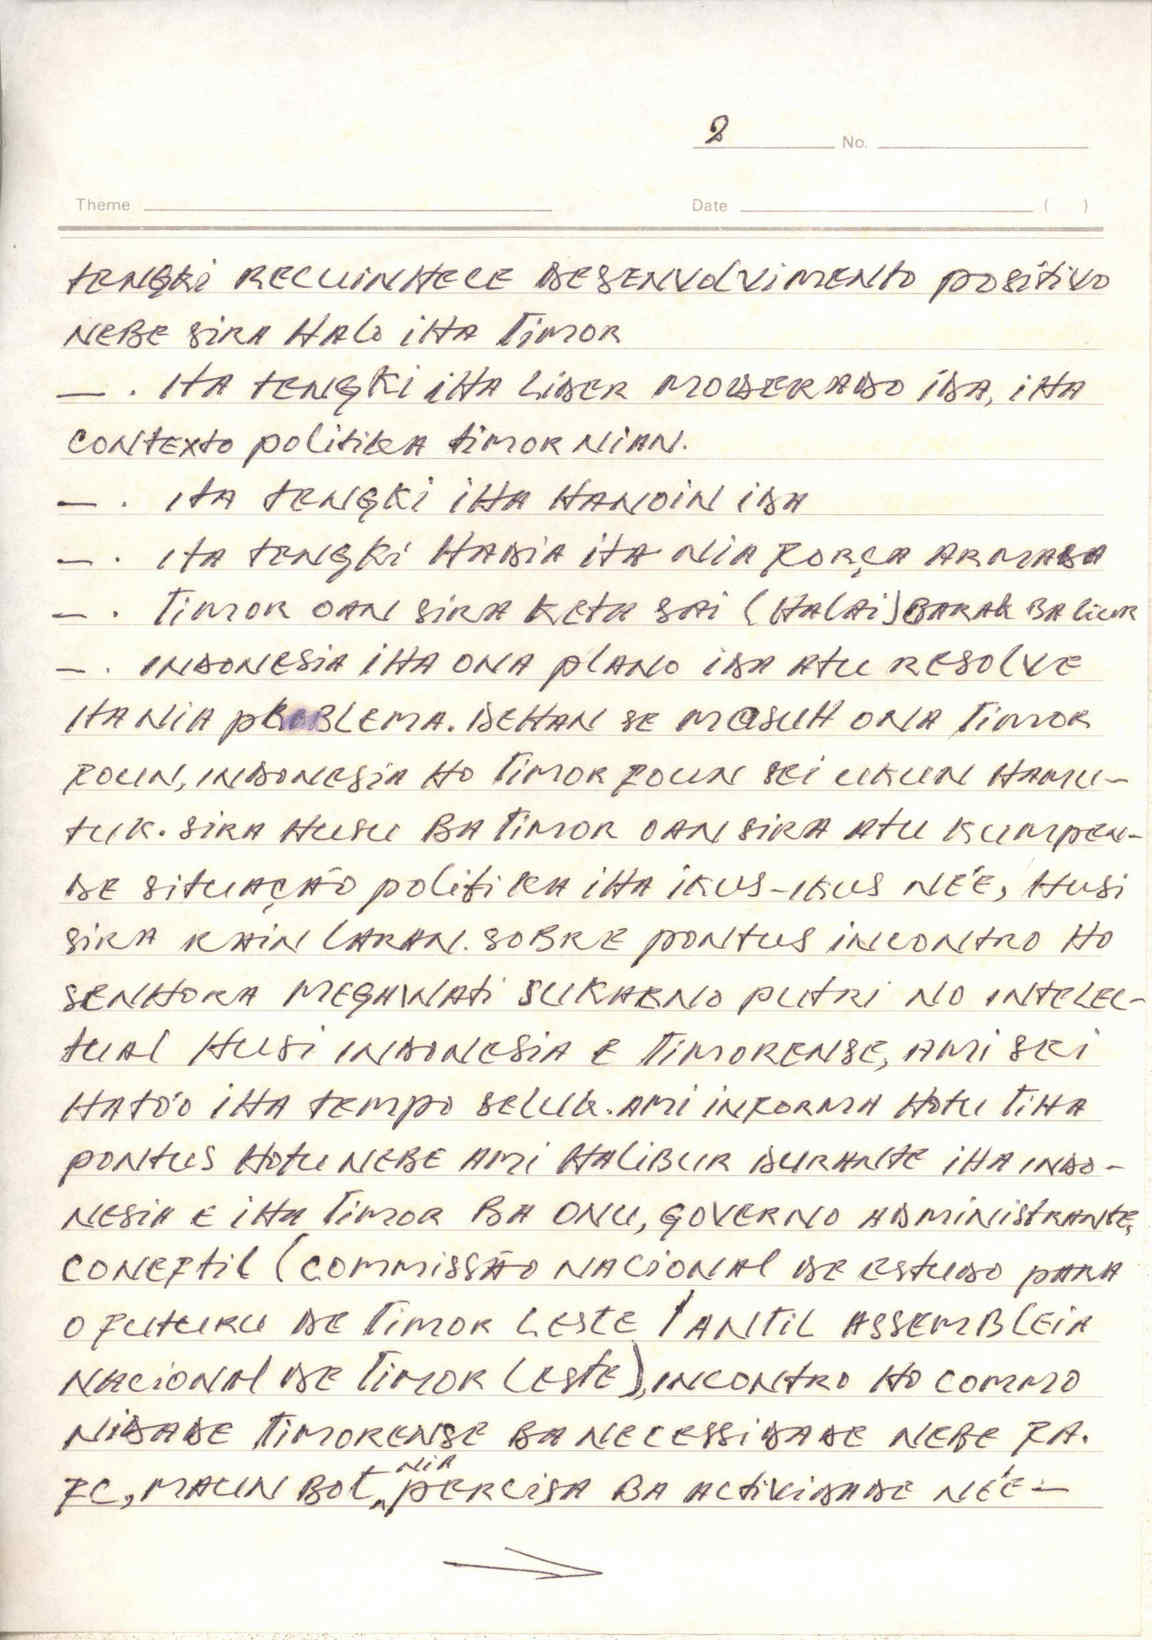 2 No.
Theme Date ( )
TENGKI RECUINHECE DESENVOLVIMENTO POSITIVO
NEBE SIRA HALO IHA TIMOR
—. ITA TENGKI IHA LIDER MODERADO IDA, IHA
CONTEXTO POLITIKA TIMOR NIAN.
—. ITA TENGKI IHA HANOIN IDA
—. ITA TENGKI HADIA ITA NIA FORÇA ARMADA
—. TIMOR OAN SIRA KETA SAI (HALAI) BARAK BA LIUR
—. INDONESIA IHA ONA PLANO IDA ATU RESOLVE
ITA NIA PROBLEMA. DEHAN SE MOSUH ONA TIMOR
FOUN, INDONESIA HO TIMOR FOUN SEI UKUN HAMU-
TUK. SIRA HUSU BA TIMOR OAN SIRA ATU KUMPEN-
DE SITUAÇÃO POLITIKA IHA IKUS-IKUS NÉ'E, HUSI
SIRA KAIN LARAN. SOBRE PONTUS INCONTRO HO
SENHORA MEGAWATI SUKARNO PUTRI NO INTELEC-
TUAL HUSI INDONESIA E TIMORENSE, AMI SEI
HATO'O IHA TEMPO SELUK. AMI INFORMA HOTU TIHA
PONTUS HOTU NEBE AMI HALIBUR DURANTE IHA INDO-
NESIA E IHA TIMOR BA ONU, GOVERNO ADMINISTRANTE,
CONEFTIL (COMMISSÃO NACIONAL DE ESTUDO PARA
O FUTURU DE TIMOR LESTE / ANTIL ASSEMBLEIA
NACIONAL DE TIMOR LESTE), INCONTRO HO COMMO
NIDADE TIMORENSE BA NECESSIDADE NEBE FA.
FC, MAUN BOT NIA PERCISA BA ACTIVIDADE NÉ'E —